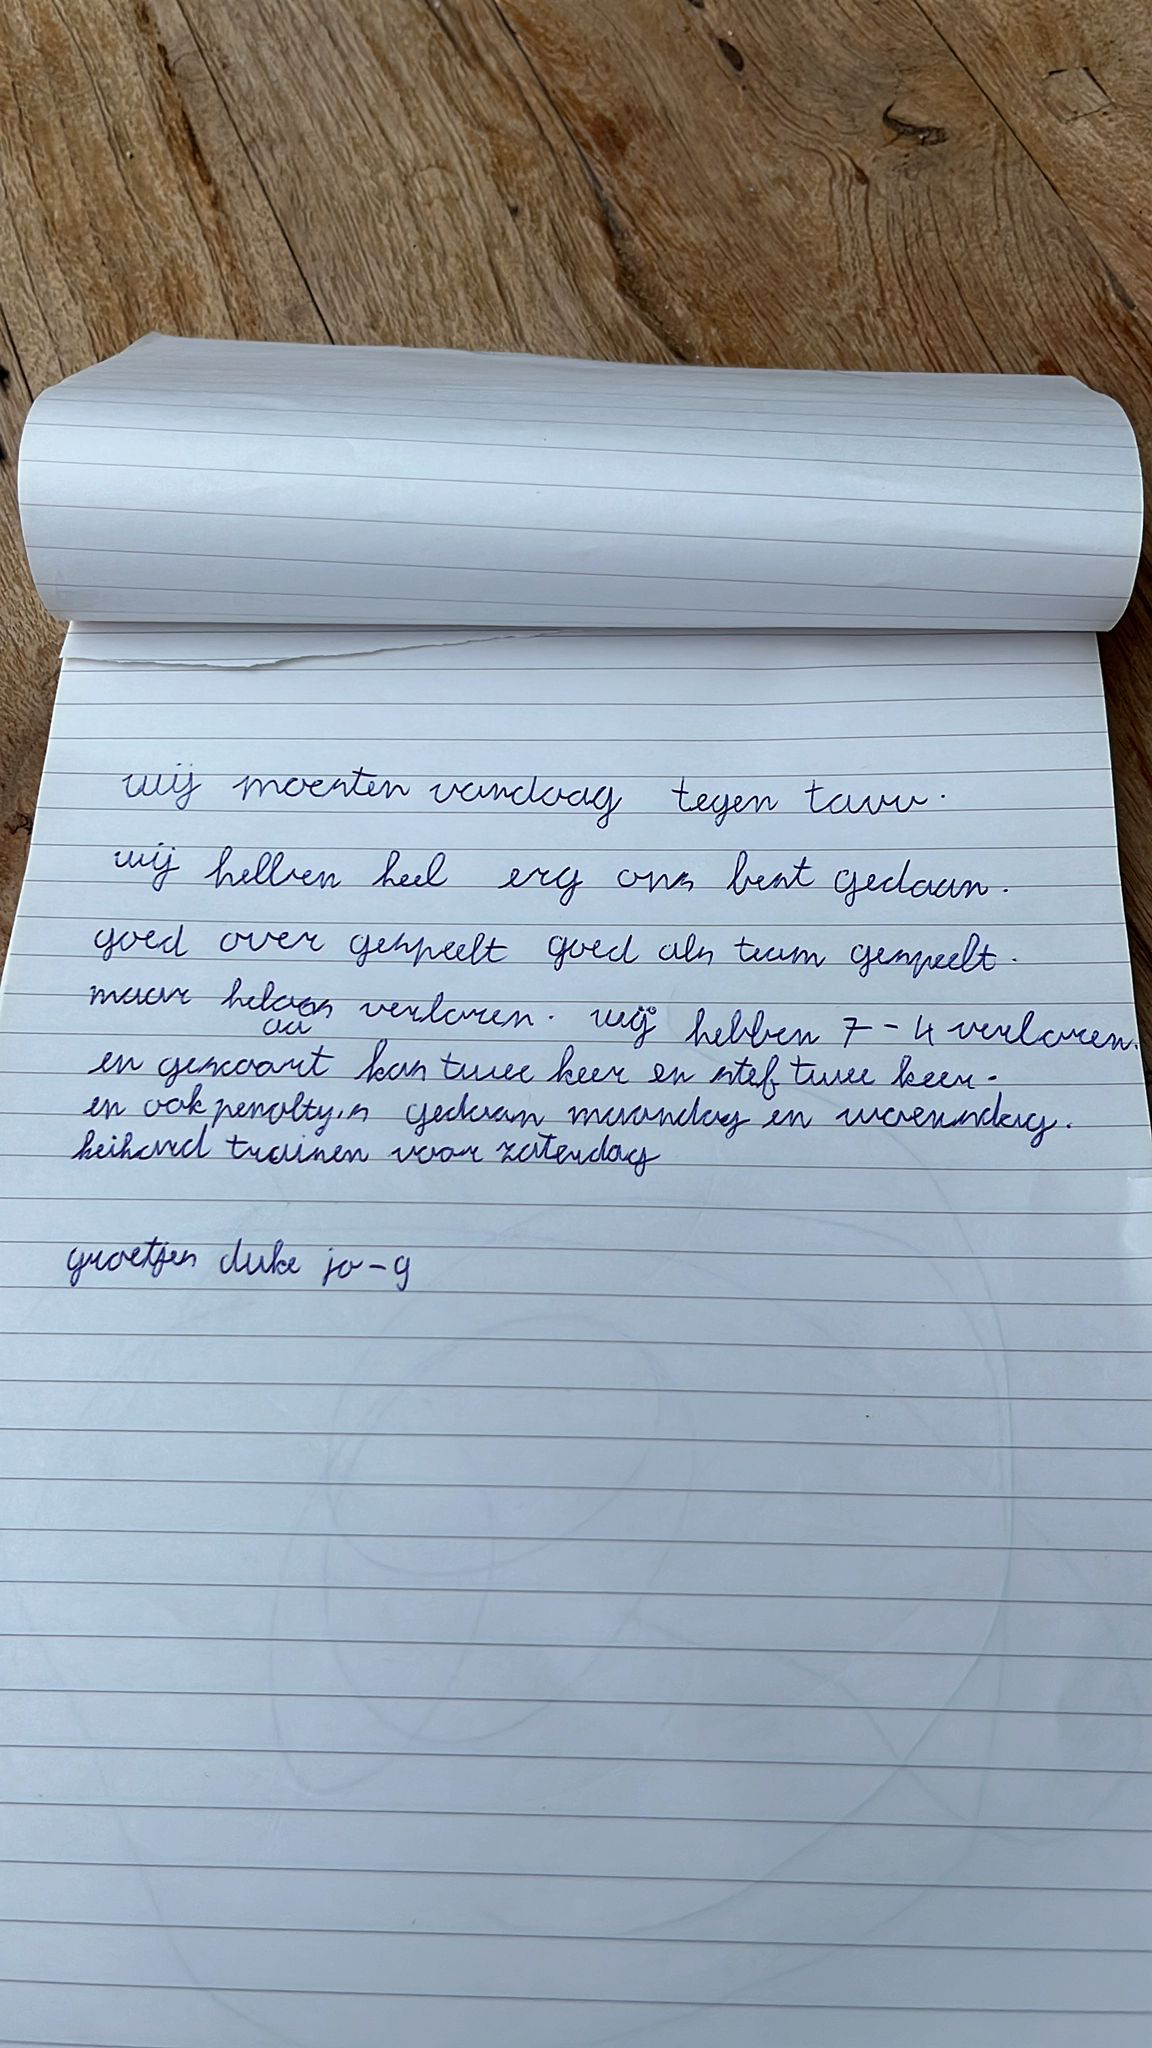 wij moesten vandaag tegen tavv.
wij hebben heel erg ons best gedaan.
goed over gespeelt goed als team gespeelt.
maar helaas verloren. wij hebben 7-4 verloren.
aa
en gescoort kas twee keer en stef twee keer.
en ook penalty,s gedaan maandag en woensdag.
keihard trainen voor zaterdag
groetjes duke jo-9